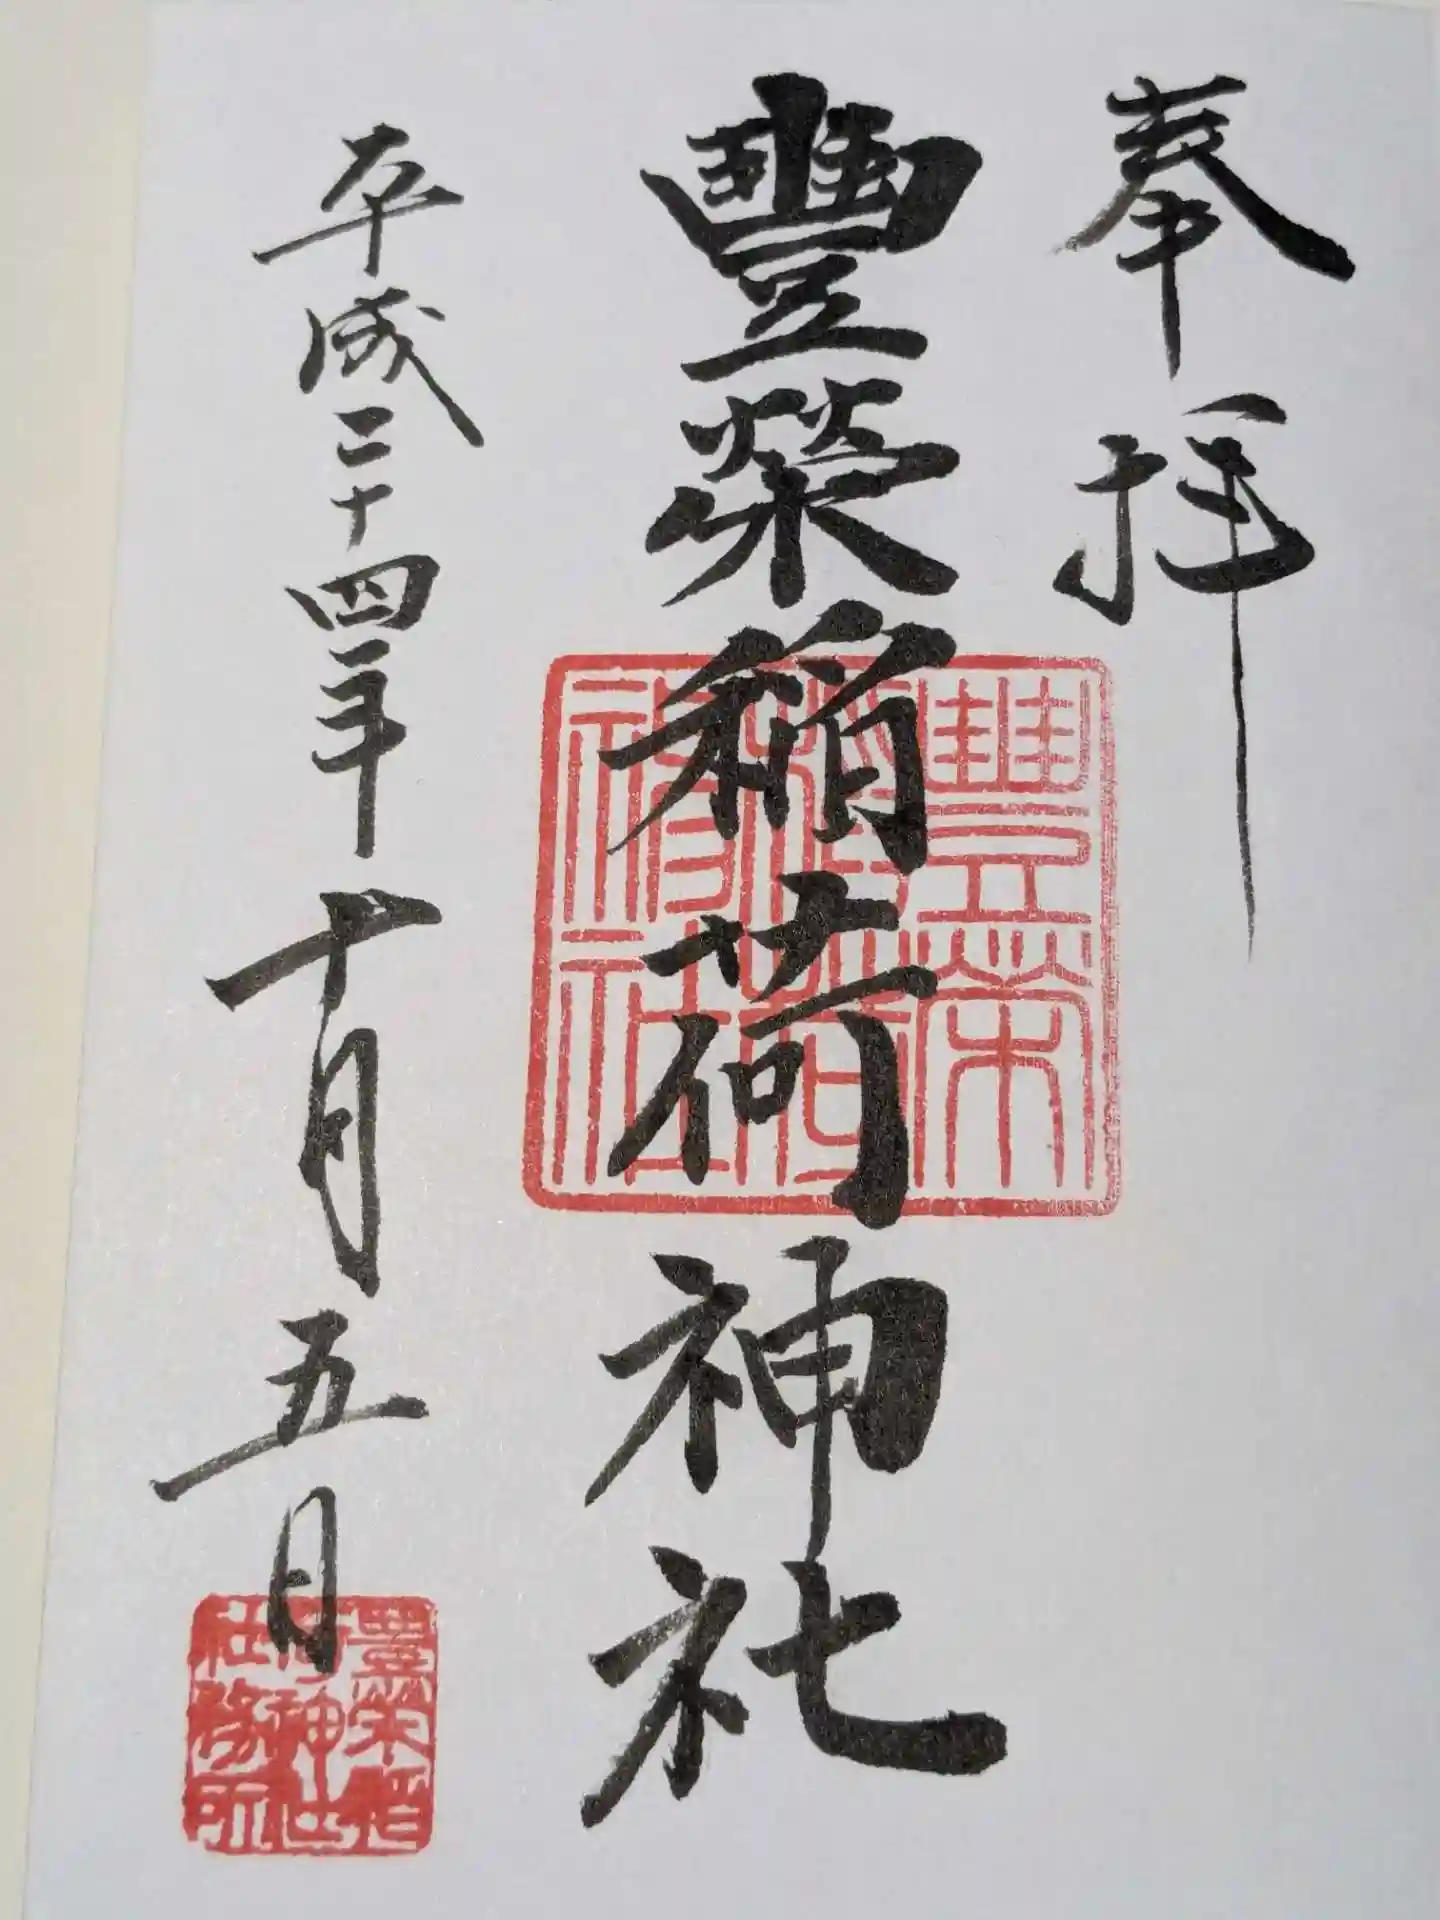 奉拝
豐榮稲荷神社
平成二十四年十月五日
豊榮
稲荷
神社
豊榮稲
荷神社
社務所